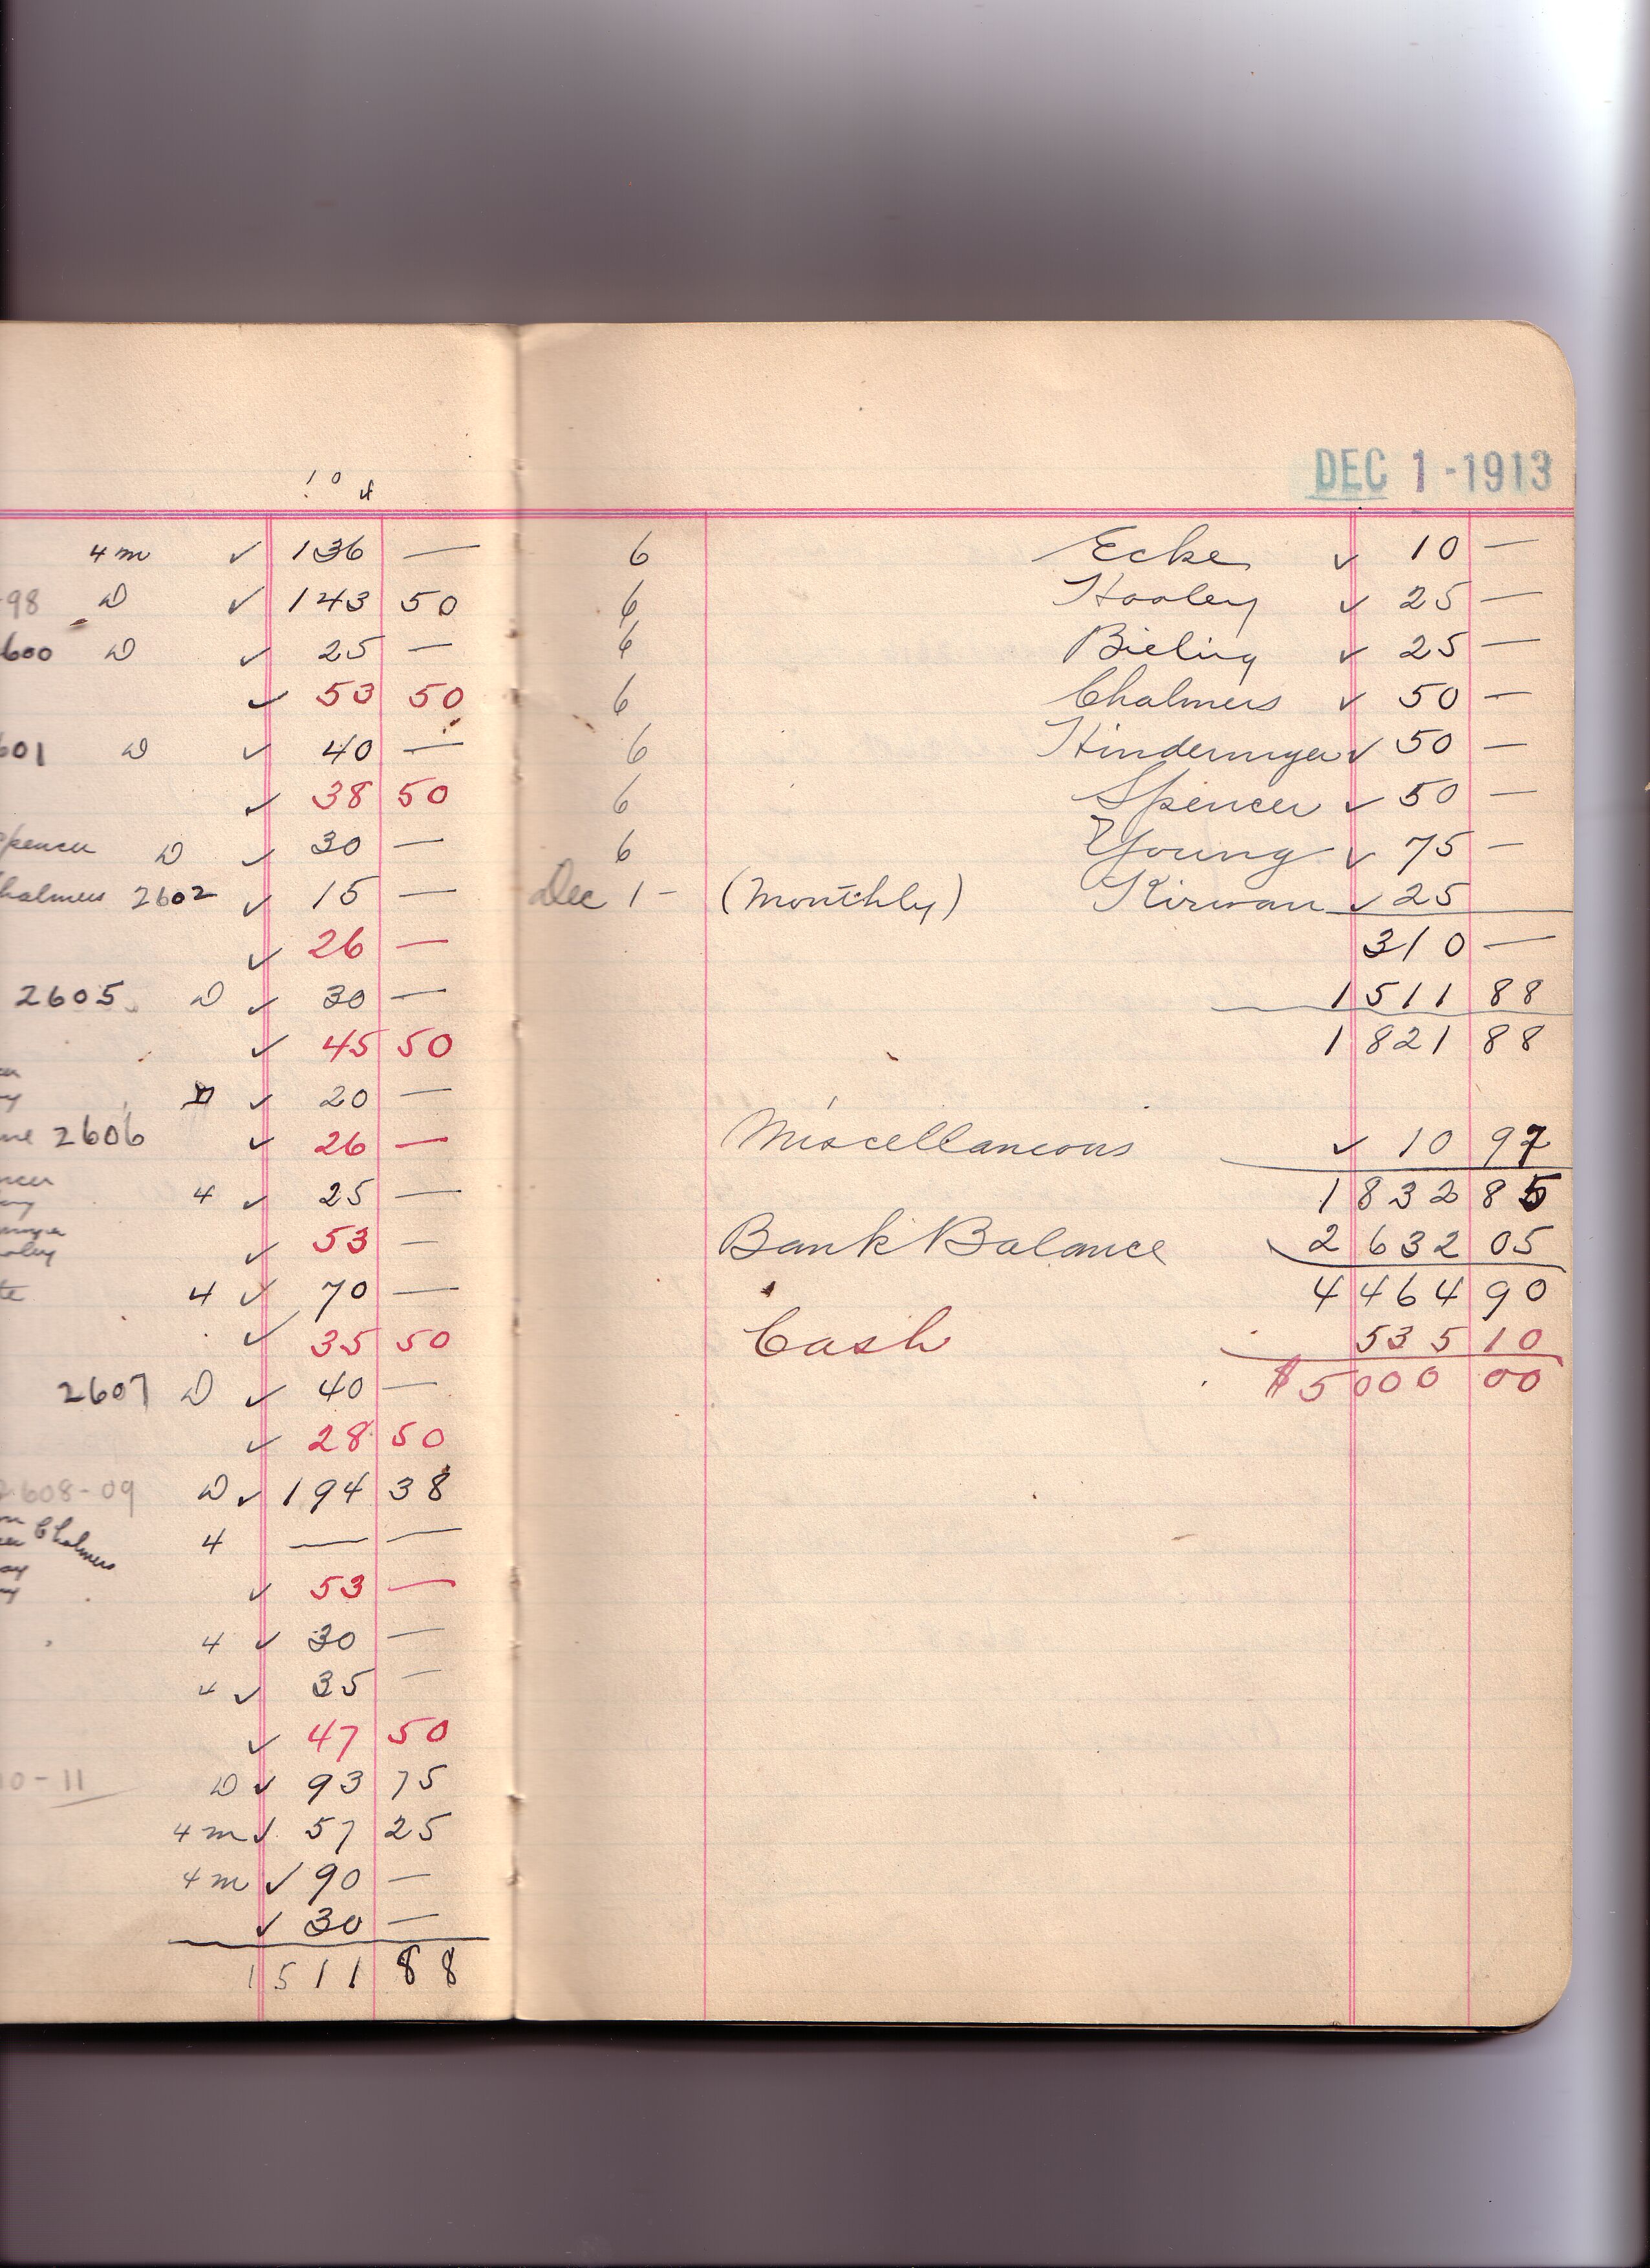 10 4
4m ✓ 136 —
98 D ✓ 143 50
600 D ✓ 25 —
✓ 53 50
601 D ✓ 40 —
✓ 38 50
Spencer D ✓ 30 —
halmers 2602 ✓ 15 —
✓ 26 —
2605 D ✓ 30 —
✓ 45 50
✓ 20 —
2606 ✓ 26 —
4 ✓ 25 —
✓ 53 —
4 ✓ 70 —
✓ 35 50
2607 D ✓ 40 —
✓ 28 50
2608-09 D ✓ 194 38
Chalmers 4 — —
✓ 53 —
4 ✓ 30 —
4 ✓ 35 —
✓ 47 50
10-11 D ✓ 93 75
4m ✓ 57 25
4m ✓ 90 —
✓ 30 —
1511 88
DEC 1-1913
6 Ecke ✓ 10 —
6 Hooley ✓ 25 —
6 Bieling ✓ 25 —
6 Chalmers ✓ 50 —
6 Hindermyer ✓ 50 —
6 Spencer ✓ 50 —
6 Young ✓ 75 —
Dec 1- (Monthly) Kirwan ✓ 25
310 —
1511 88
1821 88
Miscellaneous ✓ 10 97
1832 85
Bank Balance 2632 05
4464 90
Cash 535 10
$5000 00